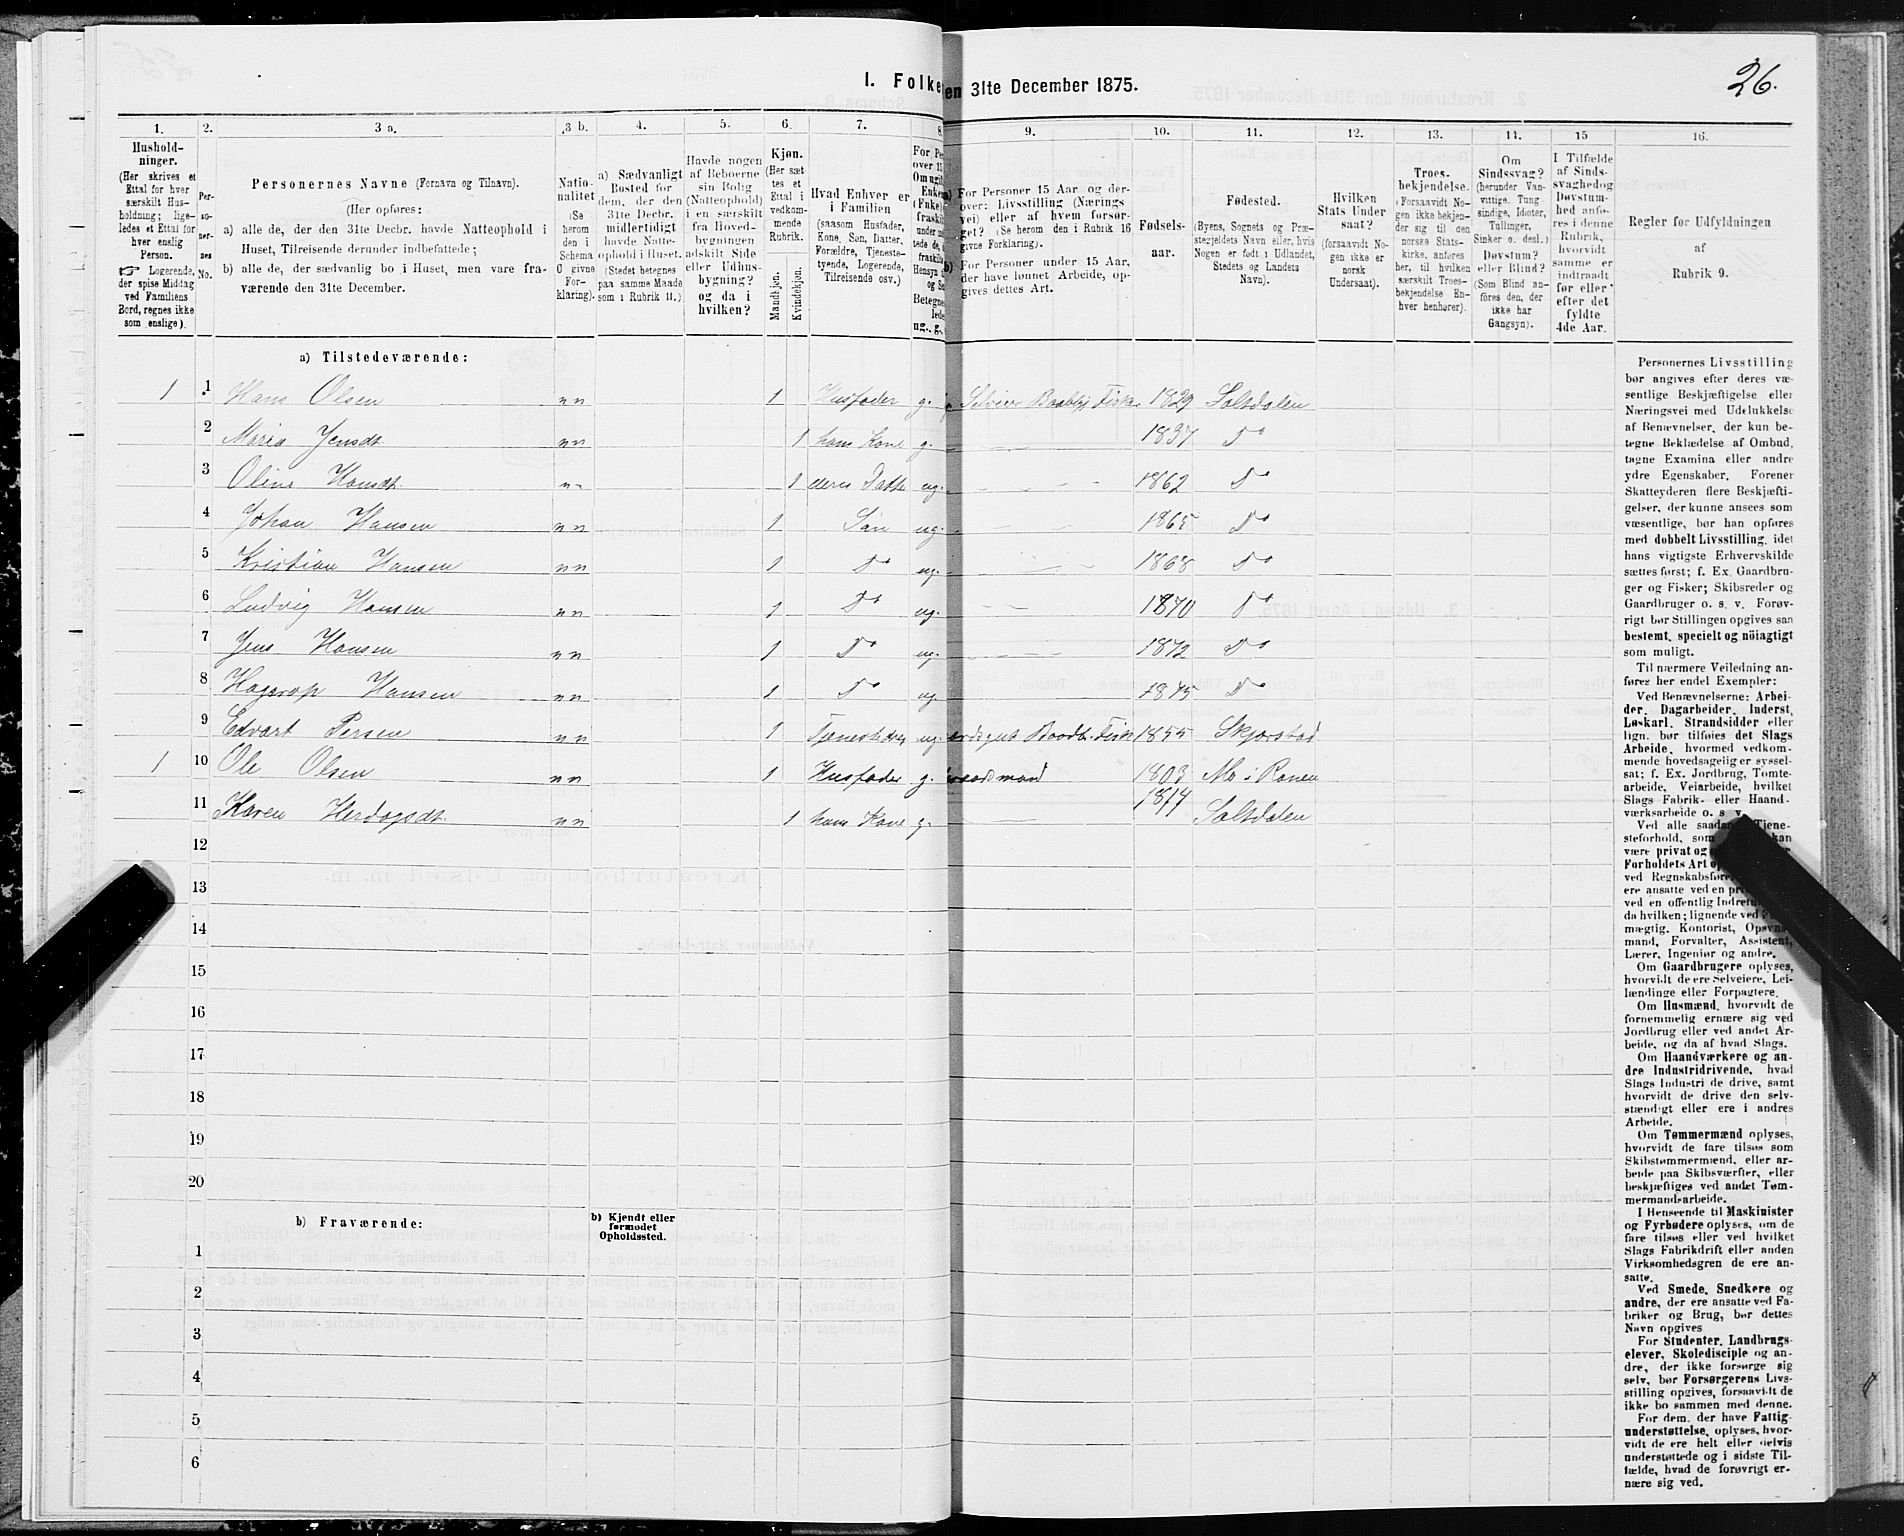 26.
1. Folke en 31te December 1875.
1. 2. 3 a. 3 b. 4. 5. 6. 7. 8. 9. 10. 11. 12. 13. 14. 15 16.
Hushold-
ninger.
(Her skrives et
Ettal for hver
særskilt Hus-
holdning; lige-
ledes et Ettal for
hver enslig
Person.
☞ Logerende,
der spise Middag
ved Familiens
Bord, regnes ikke
som enslige).
Per-
so-
ner-
nes
No.
Personernes Navne (Fornavn og Tilnavn).
(Her opføres:
a) alle de, der den 31te Decbr. havde Natteophold i
Huset, Tilreisende derunder indbefattede;
b) alle de, der sædvanlig bo i Huset, men vare fra-
værende den 31te December.
Natio-
nalitet
(Se
herom
den i
Schema
C givne
For-
klaring).
a) Sædvanligt
Bosted for
dem, der den
31te Decbr.
midlertidigt
havde Natte-
ophold i Huset.
(Stedet betegnes
paa samme Maade
som i Rubrik 11.)
Havde nogen
af Beboerne
sin Bolig
(Natteophold)
i en særskilt
fra Hoved-
bygningen
adskilt Side
eller Udhus-
bygning?
og da i
hvilken?
Kjøn.
(Her sæt-
tes et
Ettal i
vedkom-
mende
Rubrik.
Mandkjøn.
Kvindekjøn.
Hvad Enhver er
i Familien
(saasom Husfader,
Kone, Søn, Datter,
Forældre, Tjeneste-
tyende, Logerende,
Tilreisende osv.)
a) For Personer 15 Aar og der-
over: Livsstilling (Nærings
vei) eller af hvem forsør-
get? (Se herom den i Rubrik 16
givne Forklaring).
b) For Personer under 15 Aar,
der have lønnet Arbeide, op-
gives dettes Art.
Fødsels-
aar.
Fødested.
(Byens, Sognets og Præ-
stegjeldets Navn eller, hvis
Nogen er født i Udlandet,
Stedets og Landets
Navn).
Hvilken
Stats Under
saat?
(forsaavidt No-
gen ikke er
norsk
Undersaat).
Troes-
bekjendelse.
(Forsaavidt No-
gen ikke bekjen-
der sig til den
norske Stats-
kirke, anføres
her, til hvilken
særskilt Troes-
bekjendelse En-
hver henhører).
Om
Sindssvag?
(herunder Van-
vittige, Tung-
sindige, Idioter,
Tullinger,
Sinker o. desl.)
Døvstum?
eller Blind?
(Som Blind an-
føres den, der
ikke har
Gangsyn).
I Tilfælde
af Sinds-
svaghed og
Døvstum-
hed anfø-
res i denne
Rubrik,
hvorvidt
samme er
indtraadt
før eller
efter det
fyldte
4de Aar.
Regler for Udfyldningen
af
Rubrik 9.
a) Tilstedeværende:
1 1 Hans Olsen nn 1 Husfader g. Selveier Fisk 1829 Saltdalen
2 Maria Jensdt nn 1 hans Kone g. 1837 Do
3 Oline Hansdt nn 1 deres Datte ug. 1862 Do
4 Johan Hansen nn 1 Søn ug. 1865 Do
5 Kristian Hansen nn 1 Do ug. 1868 Do
6 Ludvig Hansen nn 1 Do ug. 1870 Do
7 Jens Hansen nn 1 Do ug. 1872 Do
8 Hagerop Hansen nn 1 Do ug 1875 Do
9 Edvart Persen nn 1 ug. Fisk 1855 Skjerstad
1 10 Ole Olsen nn 1 Husfader g. 1803 Mo i Ranen
11 Karen Herdagsdt nn 1 hans Kone g. 1814 Saltdalen
12
13
14
15
16
17
18
19
20
b) Fraværende:
b) Kjendt eller
formodet
Opholdssted.
1
2
3
4
5
6
Personernes Livsstilling
bør angives efter deres væ-
sentlige Beskjæftigelse eller
Næringsvei med Udelukkelse
af Benævnelser, der kun be-
tegne Beklædelse af Ombud,
tagne Examina eller andre
ydre Egenskaber. Forener
Skatteyderen flere Beskjæfti-
gelser, der kunne ansees som
væsentlige, bør han opføres
med dobbelt Livsstilling, idet
hans vigtigste Erhvervskilde
sættes først; f. Ex. Gaardbru-
ger og Fisker; Skibsreder og
Gaardbruger o. s. v. Forøv-
rigt bør Stillingen opgives saa
bestemt, specielt og nöiagtigt
som muligt.
Til nærmere Veiledning an-
føres her endel Exempler:
Ved Benævnelserne: Arbei-
der, Dagarbeider, Inderst,
Løskarl, Strandsidder eller
lign. bør tilføies det Slags
Arbeide, hvormed vedkom-
mende hovedsagelig er syssel-
sat; f. Ex. Jordbrug, Tomte-
arbeide, Veiarbeide, hvilket
Slags Fabrik- eller Haand-
værksarbeide o. s. v.
Ved alle Tjene-
steforhold, som kan
være privat og
Forholdets Art
ved Regnskabsføre
ere ansatte ved en
ved en offentlig
da hvilken; lignende ved
mægtig, Kontorist,
mand, Forvalter, Assistent,
Lærer, Ingeniør og andre.
Om Gaardbrugere oplyses,
hvorvidt de ere Selveiere, Lei-
lændinge eller Forpagtere.
Om Husmænd, hvorvidt de
fornemmelig ernære sig ved
Jordbrug eller ved andet Ar-
beide, og da af hvad Slags.
Om Haandværkere og an-
dre Industridrivende, hvad
Slags Industri de drive, samt
hvorvidt de drive den selv-
stændigt eller ere i andres
Arbeide.
Om Tømmermænd oplyses,
hvorvidt de fare tilsøs som
Skibstømmermænd, eller ar-
beide paa Skibsværfter, eller
beskjæftiges ved andet Tøm-
mermandsarbeide.
I Henseende til Maskinister
og Fyrbødere oplyses, om de
fare tilsøs eller ved hvilket
Slags Fabrikdrift eller anden
Virksomhedsgren de ere an-
satte.
Ved Smede, Snedkere og
andre, der ere ansatte ved Fa-
briker og Brug, bør dettes
Navn opgives
For Studenter, Landbrugs-
elever, Skoledisciple og an-
dre, der ikke forsørge sig
selv, bør Forsørgerens Livs-
stilling opgives, forsaavidt de
ikke bo sammen med denne.
For dem, der have Fattig-
understøttelse, oplyses, hvor-
vidt de ere helt eller delvis
understøttede og i sidste Til-
fælde, hvad de forøvrigt er-
nære sig ved.